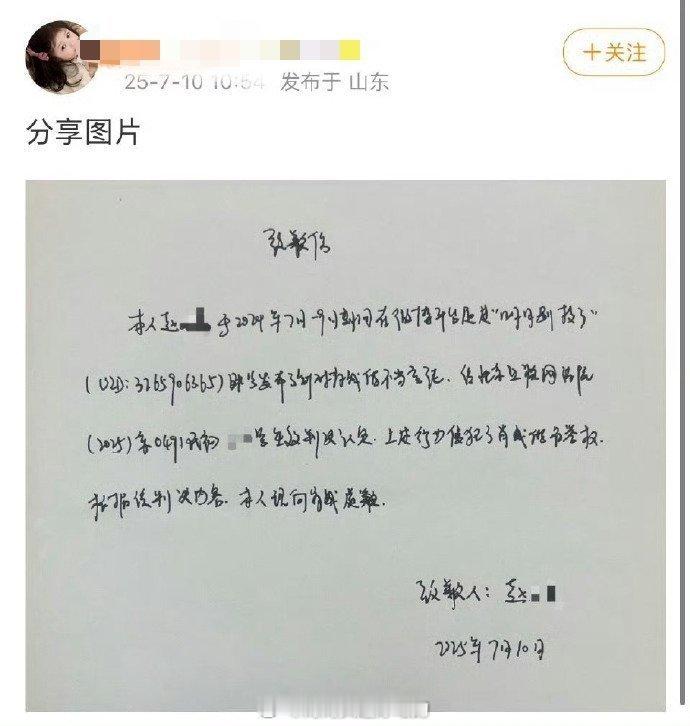 25-7-10 10:54 发布于 山东
+关注
分享图片
致歉信
本人赵 于2024年7月-9月期间在微博平台通过"
(UID:3265906365)账号发布了针对肖战的不当言论,经北京互联网法院
(2025)京0491民初 号生效判决认定,上述行为侵犯了肖战的名誉权。
根据该判决内容,本人现向肖战致歉。
致歉人:赵
2025年7月10日